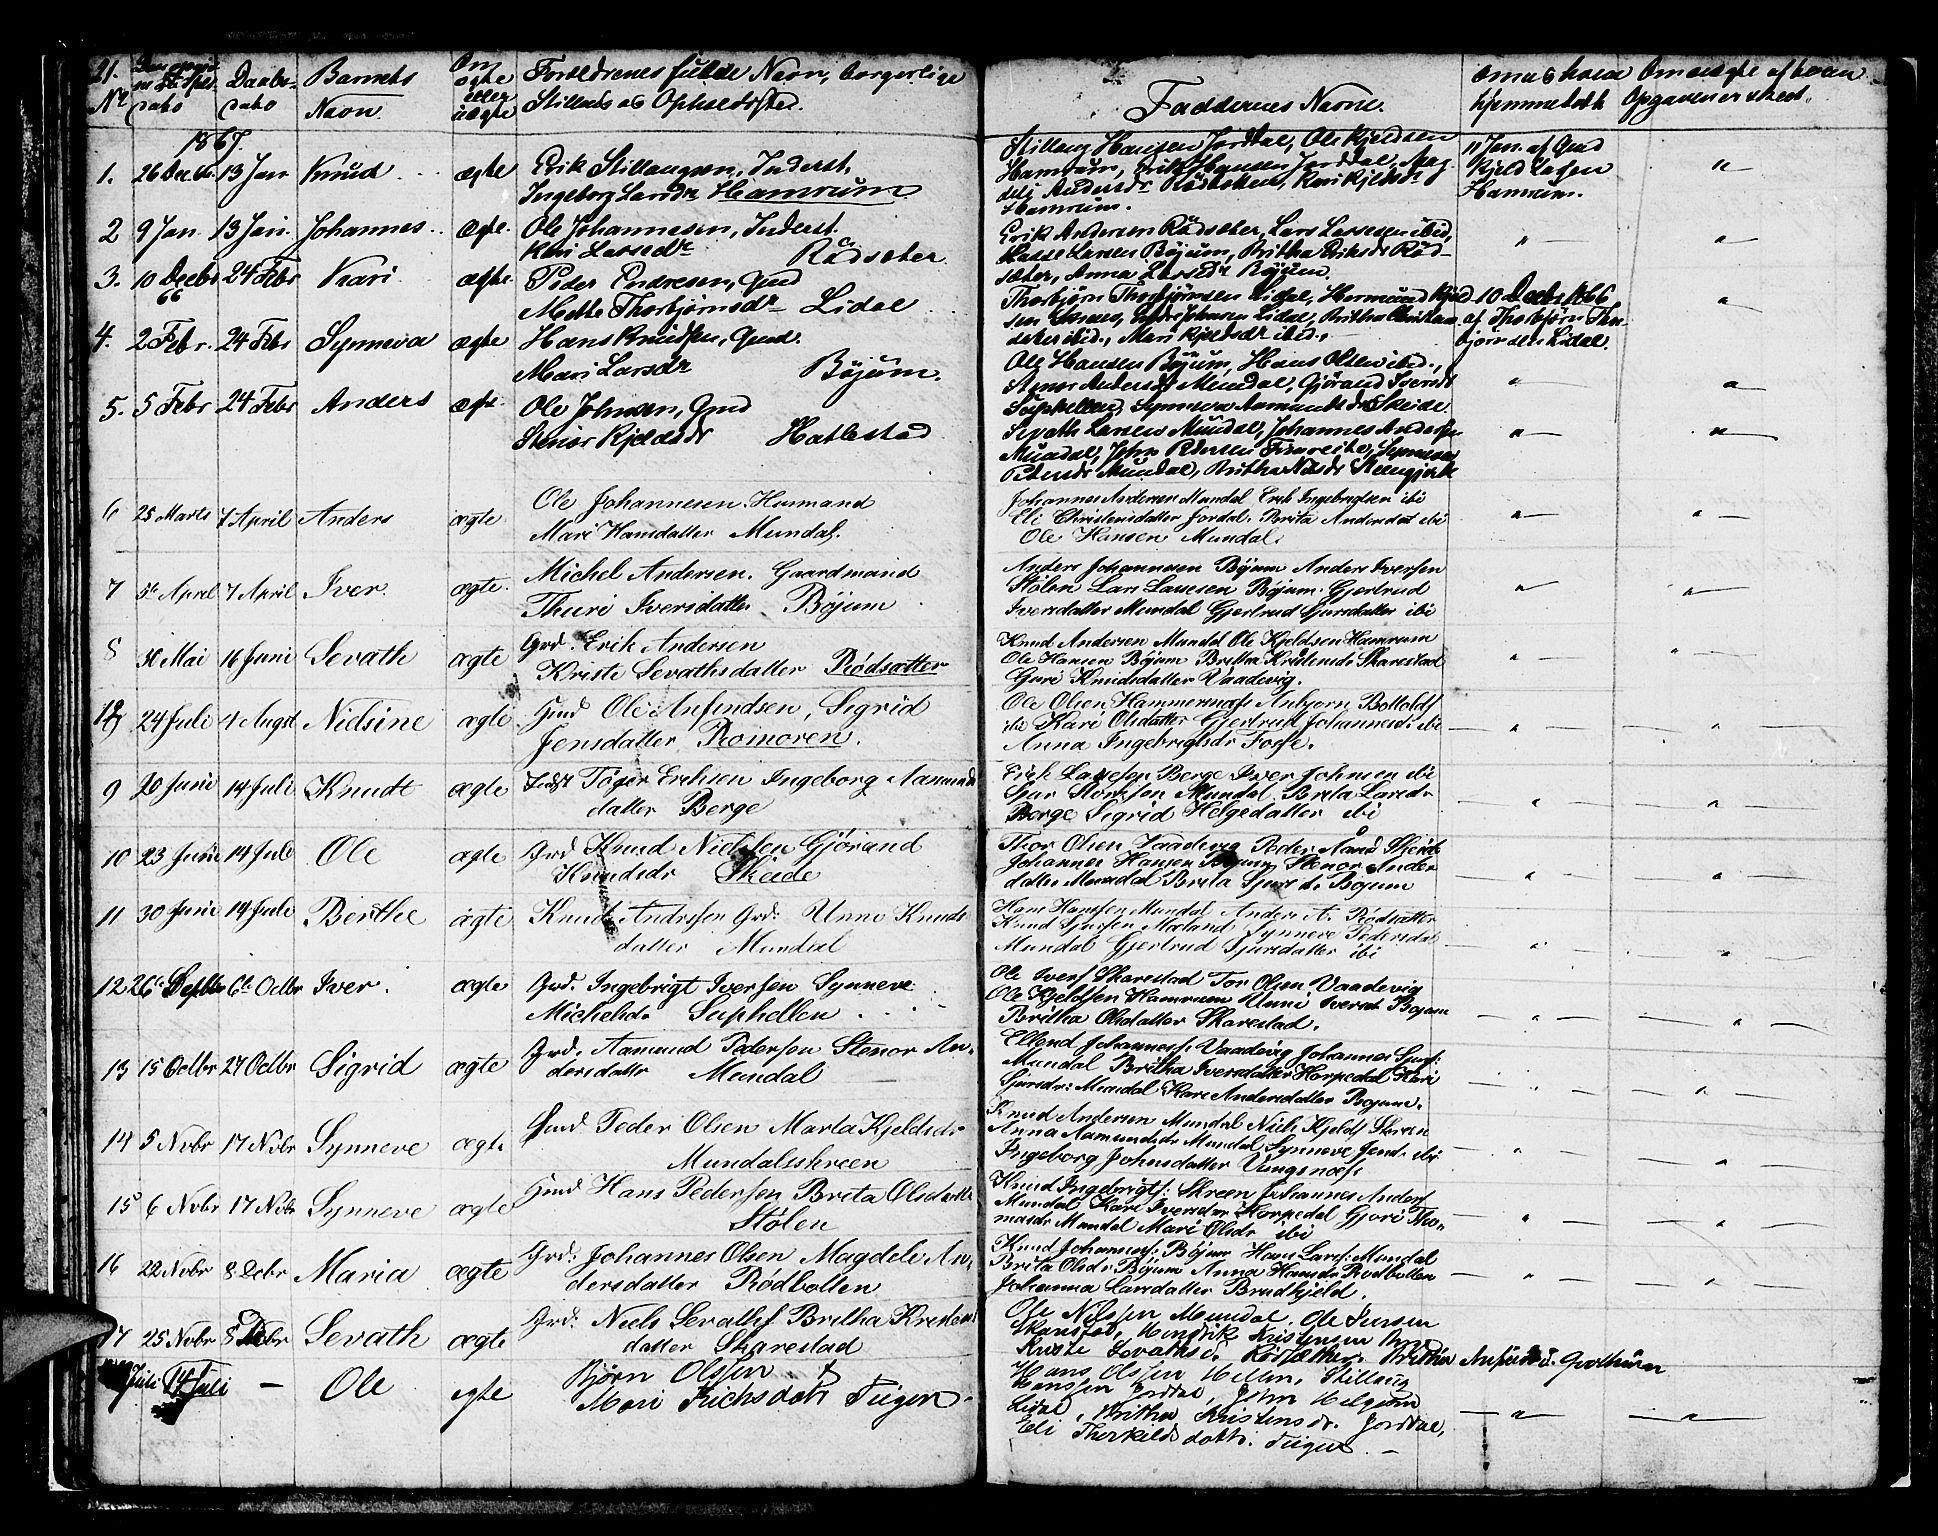 21.
No Daabs- Barnets Om ægte eller uægte Forældrenes fulde Navn, borgerlige
dato dato Navn Stilling og Opholdssted.
Faddernes Navne.
hjemmedøbt
1867.
1. 26 Dec 66. 13 Jan Knud ægte Erik Stillaugsen, Inderst,
Ingeborg Larsdr Hamrum
Stillaug Hansen Jordal, Ole Kjeldsen
Hamrum, Erik Hansen Jordal, Mag
deli Andersdr Rødbotten, Kari Kjeldsdr
Hamrum.
11 Jan. af Gmd
Kjeld Larsen
Hamrum.
2 9 Jan 13 Jan. Johannes ægte. Ole Johannesen, Inderst.
Kari Larsedr Rödsæter
Erik Andersen Rödsæter, Lars Larsesen ibid,
Lasse Larsen Böjum, Britha Eriksdr Röd-
sæter, Anna Larsdr Böjum.
3. 10 Decbr 66 24 Febr Kari ægte. Peder Endresen, Gmd
Mette Thorbjörnsdr Lidal
Thorbjörn Thorbjörnsen Lidal, Hermund Kjeld-
sen
ibid., Mari Kjeldsdr ibid.
10 Decbr 1866
af Thorbjörn Thor-
björnsen Lidal.
4. 2 Febr. 24 Febr Synneva ægte Hans Knudsen, Gmd.
Mari Larsdr Böjum.
Ole Hansen Böjum, Hans Olsen ibid.,
Stenor Andersdr Mundal, Gjörand Iversdr
Suphellen, Synneva Aamundsdr Skeide.
5. 5 Febr 24 Febr Anders ægte. Ole Johnsen, Gmd
Stenor Kjeldsdr Hatlestad
Sevath Larsen Mundal, Johannes Andersen
Mundal, John Pedersen Fimreite, Synneva
Pedersdr Mundal, Britha Nilsdr
6 25 Marts 7 April Anders ægte. Ole Johannesen. Husmand
Mari Hansdatter Mundal.
Johannes Andersen Mundal Erik Ingebrigtsen ibi
Eli Christensdatter Jordal. Brita Andersdat ibi
Ole Hansen Mundal.
7 5te April 7 April Iver ægte. Michel Andersen. Gaardmand
Thuri Iversdatter Böjum
Anders Johannesen Böjum Anders Iversen
Stölen Lars Larsesen Böjum. Gjertrud
Iversdatter Mundal Gjertrud Sjursdatter ibi
8 Mai 16 Juni Sevath ægte Grd. Erik Andersen
Kriste Sevathsdatter Rödsætter
Knud Andersen Mundal Ole Kjeldsen Hamrum
Ole Hansen Böjum Britha Kristensdr Skarestad
Guri Knudsdatter Vaadevig.
24 Juli 4 Augst Nielsine ægte Hmd Ole Anfindsen, Sigrid
Jensdatter Romören.
Ole Olsen Hammersnæs Anbjorn Botolds
ibi Kari Olsdatter Gjertrud Johannesd. ibi
Anna Ingebrigtsdr Fosse.
9 20 Juni 14 Juli Knudt ægte Indst Töger Eriksen Ingeborg Aamunds
datter Berge
Erik Lassesen Berge Iver Johnsen ibi
Sjur Mundal Brita Larsdr
Berge Sigrid Helgedatter ibi
10 23 Juni 14 Juli Ole ægte Grd Knud Nielsen Gjörand
Knudsdr Skeide
Thor Olsen Vaadevig Peder Skeide
Johannes Hansen Böjum Stenor Anders
datter Mundal Brita Sjursd. Böjum
11 30 Juni 14 Juli Berthe ægte Knud Andersen Grd: Unni Knuds
datter Mundal
Hans Hansen Mundal Anders A. Rödsætter
Knud Sjursen Mæland Synneve Pedersdat
Mundal Gjertrud Sjursdatter ibi
12 26 Septbr 6te Octbr Iver. ægte Grd. Ingebrigt Iversen Synneve
Michelsd. Suphellen
Ole Ivers Skarestad Tor Olsen Vaadevig
Ole Kjeldsen Hamrum Unni Iversd. Böjum
Britha Olsdatter Skarestad.
13 15 Octbr 27 Octbr Sigrid ægte Grd. Aamund Pedersen Stenor An-
dersdatter Mundal
Ellend Johanness. Vaadevig Johannes Sjurs:
Mundal Britha Iversdatter Horpedal Kari
Sjursdr: Mundal Kari Andersdatter Böjum.
14 5 Novbr 17 Novbr Synneve ægte Hmd Peder Olsen Marta Kjeldsdr
Mundalsskreen
Knud Andersen Mundal Niels Kjelds Skreen
Anna Aamundsdr Mundal Synneve Jensd. ibi
Ingeborg Johnsdatter Vangsnæs.
15 6 Novbr 17 Novbr Synneve ægte Hmd Hans Pedersen Brita Olsdatter
Stölen
Knud Ingebrigts: Skreen Johannes Anders
Mundal Kari Iversdr Horpedal Gjöri Tho-
masdr Mundal Mari Olsdr ibi
16 22 Novbr 8 Decbr Maria ægte Grd: Johannes Olsen Magdele An-
dersdatter Rödbotten
Knud Johannes: Böjum Hans Lars: Mundal
Brita Olsd. Böjum Anna Hansdr Rödbotten
Johanna Larsdatter Bredkjeld.
17 25 Novbr 8 Decbr Sevath ægte Grd: Niels Sevaths Britha Kristens
datter Skarestad
Ole Nilssen Mundal, Ole Iversen
Skarestad, Hendrik Kristensen
Kriste Sevathsd. Rödsætter. Britha Anfindsd.
Juli 14 Juli — Ole ægte Björn Olssen
Mari Erichsdatt Tuigen
Hans Olssen Mellum, Stillaug
Hanssen Jordal, John Helgesen
Lidal, Britha Kristensdr. Jordal,
Eli Therkildsdatt. Tuigen —